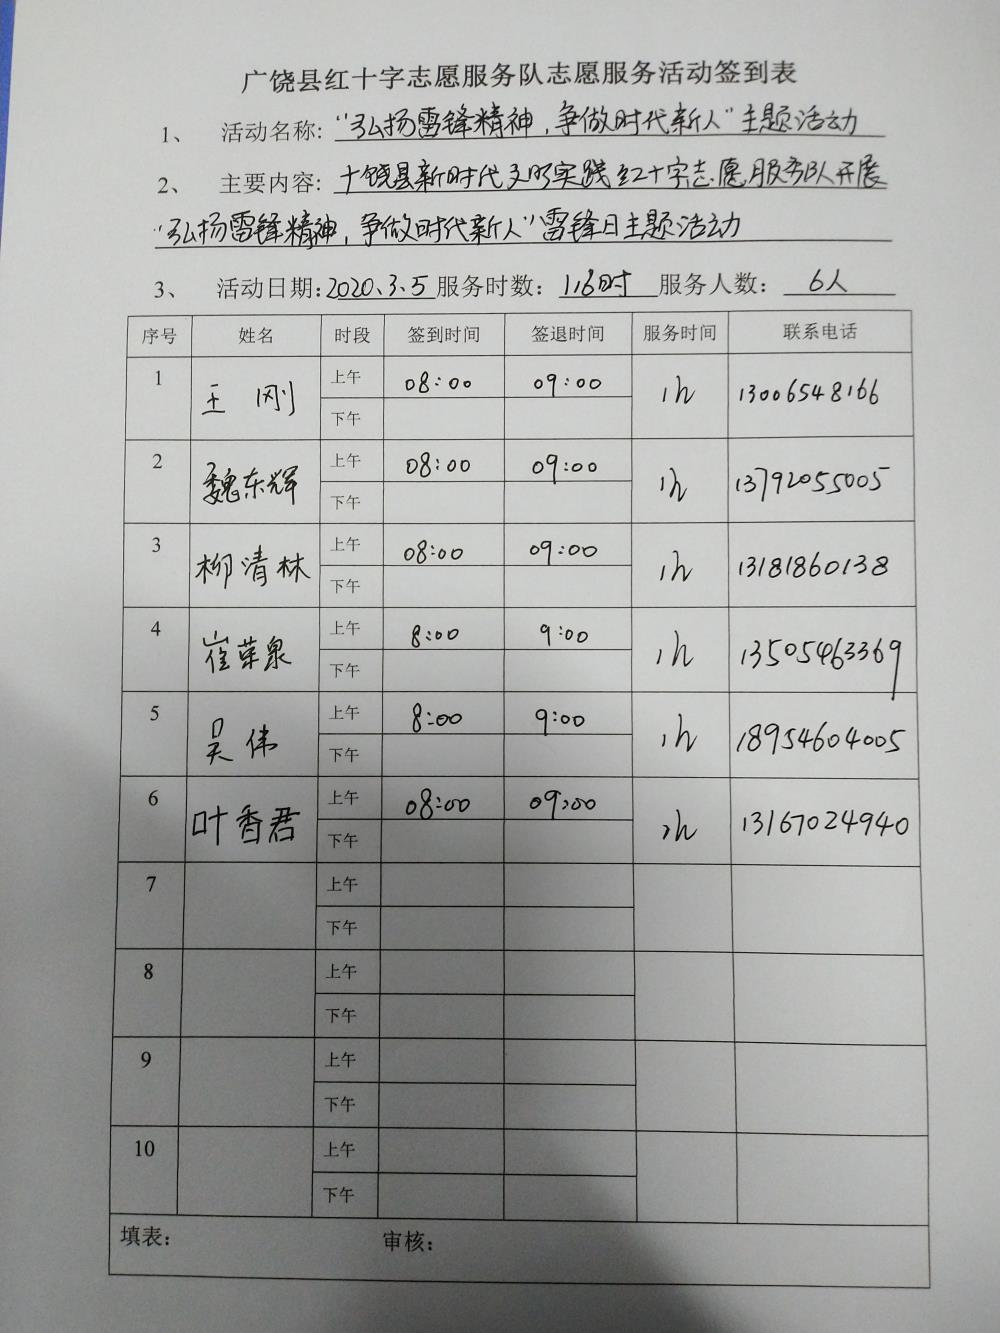 广饶县红十字志愿服务队志愿服务活动签到表
1、 活动名称: “弘扬雷锋精神，争做时代新人”主题活动
2、 主要内容: 广饶县新时代文明实践红十字志愿服务队开展
“弘扬雷锋精神，争做时代新人”雷锋日主题活动
3、 活动日期: 2020.3.5 服务时数: 服务人数: 6人
序号 姓名 时段 签到时间 签退时间 服务时间 联系电话
1 王刚 上午 08:00 09:00 1h 13006548166
下午
2 魏东辉 上午 08:00 09:00 1h 13792055005
下午
3 柳清林 上午 08:00 09:00 1h 13181860138
下午
4 崔荣泉 上午 8:00 9:00 1h 13505463369
下午
5 吴伟 上午 8:00 9:00 1h 18954604005
下午
6 叶香君 上午 08:00 09:00 1h 13167024940
下午
7 上午
下午
8 上午
下午
9 上午
下午
10 上午
下午
填表: 审核: